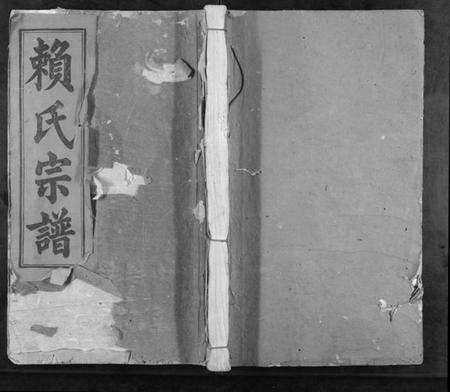 賴氏宗譜